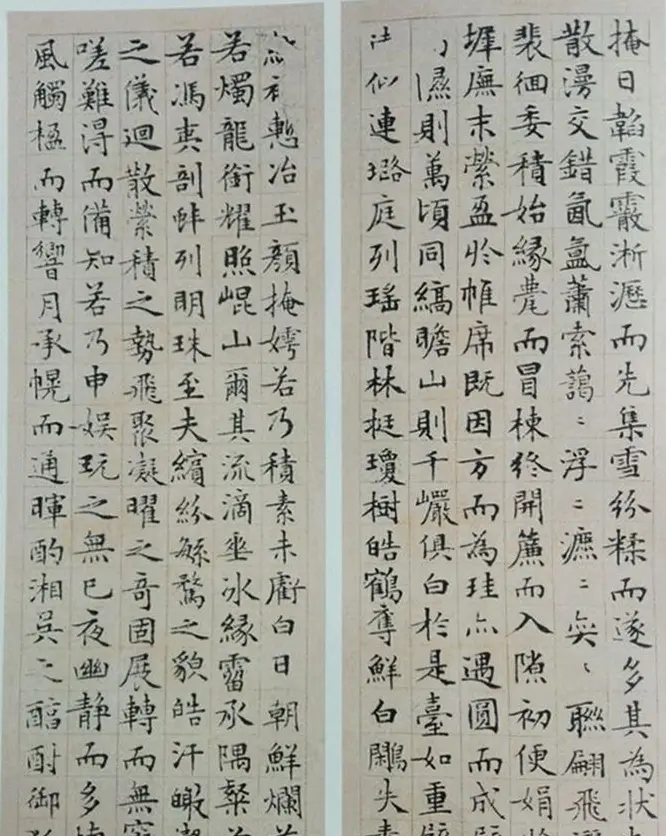 掩日韜霞霰淅瀝而先集雪紛糅而遂多其為狀
散漫交錯氤氳蕭索藹〻浮〻瀌〻奕〻聯翩飛
裴佪委積始緣甍而冒棟終開簾而入隙初便娟
墀廡末縈盈於帷席既因方而為珪亦遇圓而成
隰則萬頃同縞瞻山則千巖俱白於是臺如重
似連璐庭列瑤階林挺瓊樹皓鶴奪鮮白鷴失
慙冶玉顏掩嫮若乃積素未虧白日朝鮮爛
若燭龍銜耀照崐山爾其流滴垂冰緣霤承隅粲
若馮夷剖蚌列明珠至夫繽紛繇騖之貌皓汗曒
之儀迴散縈積之勢飛聚凝曜之奇固展轉而無窮
嗟難得而備知若乃申娛玩之無已夜幽靜而多
風觸楹而轉響月承幌而通暉酌湘吳之醇酎御